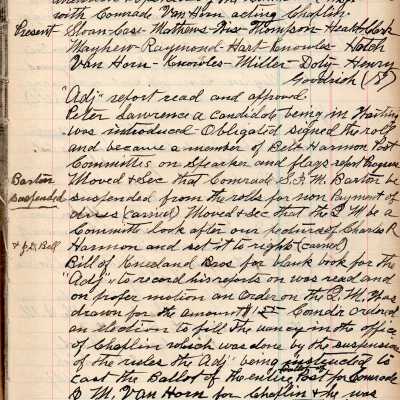 with Comrade Van Horn acting Chaplin.
Present Sloan - Case - Mathews - Ives - Thompson - Heath - Clark
Mayhew - Raymond - Hart - Knowles - Hatch
Van Horn - Knowles - Miller - Doty - Henry
Goodrich (17)
"Adj" report read and approved.
Peter Lawrence a candidate being in waiting
was introduced Obligated signed the rolls
and became a member of Belt Harmon Post
Committee on Speaker and flags report Progress
Barton Moved & Sec that Comrade S. F. M. Barton be
suspended suspended from the rolls for non Payment of
dues (carried) Moved & sec that the Q M be a
Committe look after our picture of Charles R
& Bell Harmon and set it to rights (carried)
Bill of Kneeland Bros for blank book for the
"Adj" to record his reports on was read and
on proper motion an Order on the Q. M. was
drawn for the amount Comdr ordered
an election to fill the vacancy in the office
of Chaplin which was done by the suspension
of the rules the Adj being instructed to
cast the Ballot of the entire Post for Comrade
D. M. Van Horn for Chaplin & he was